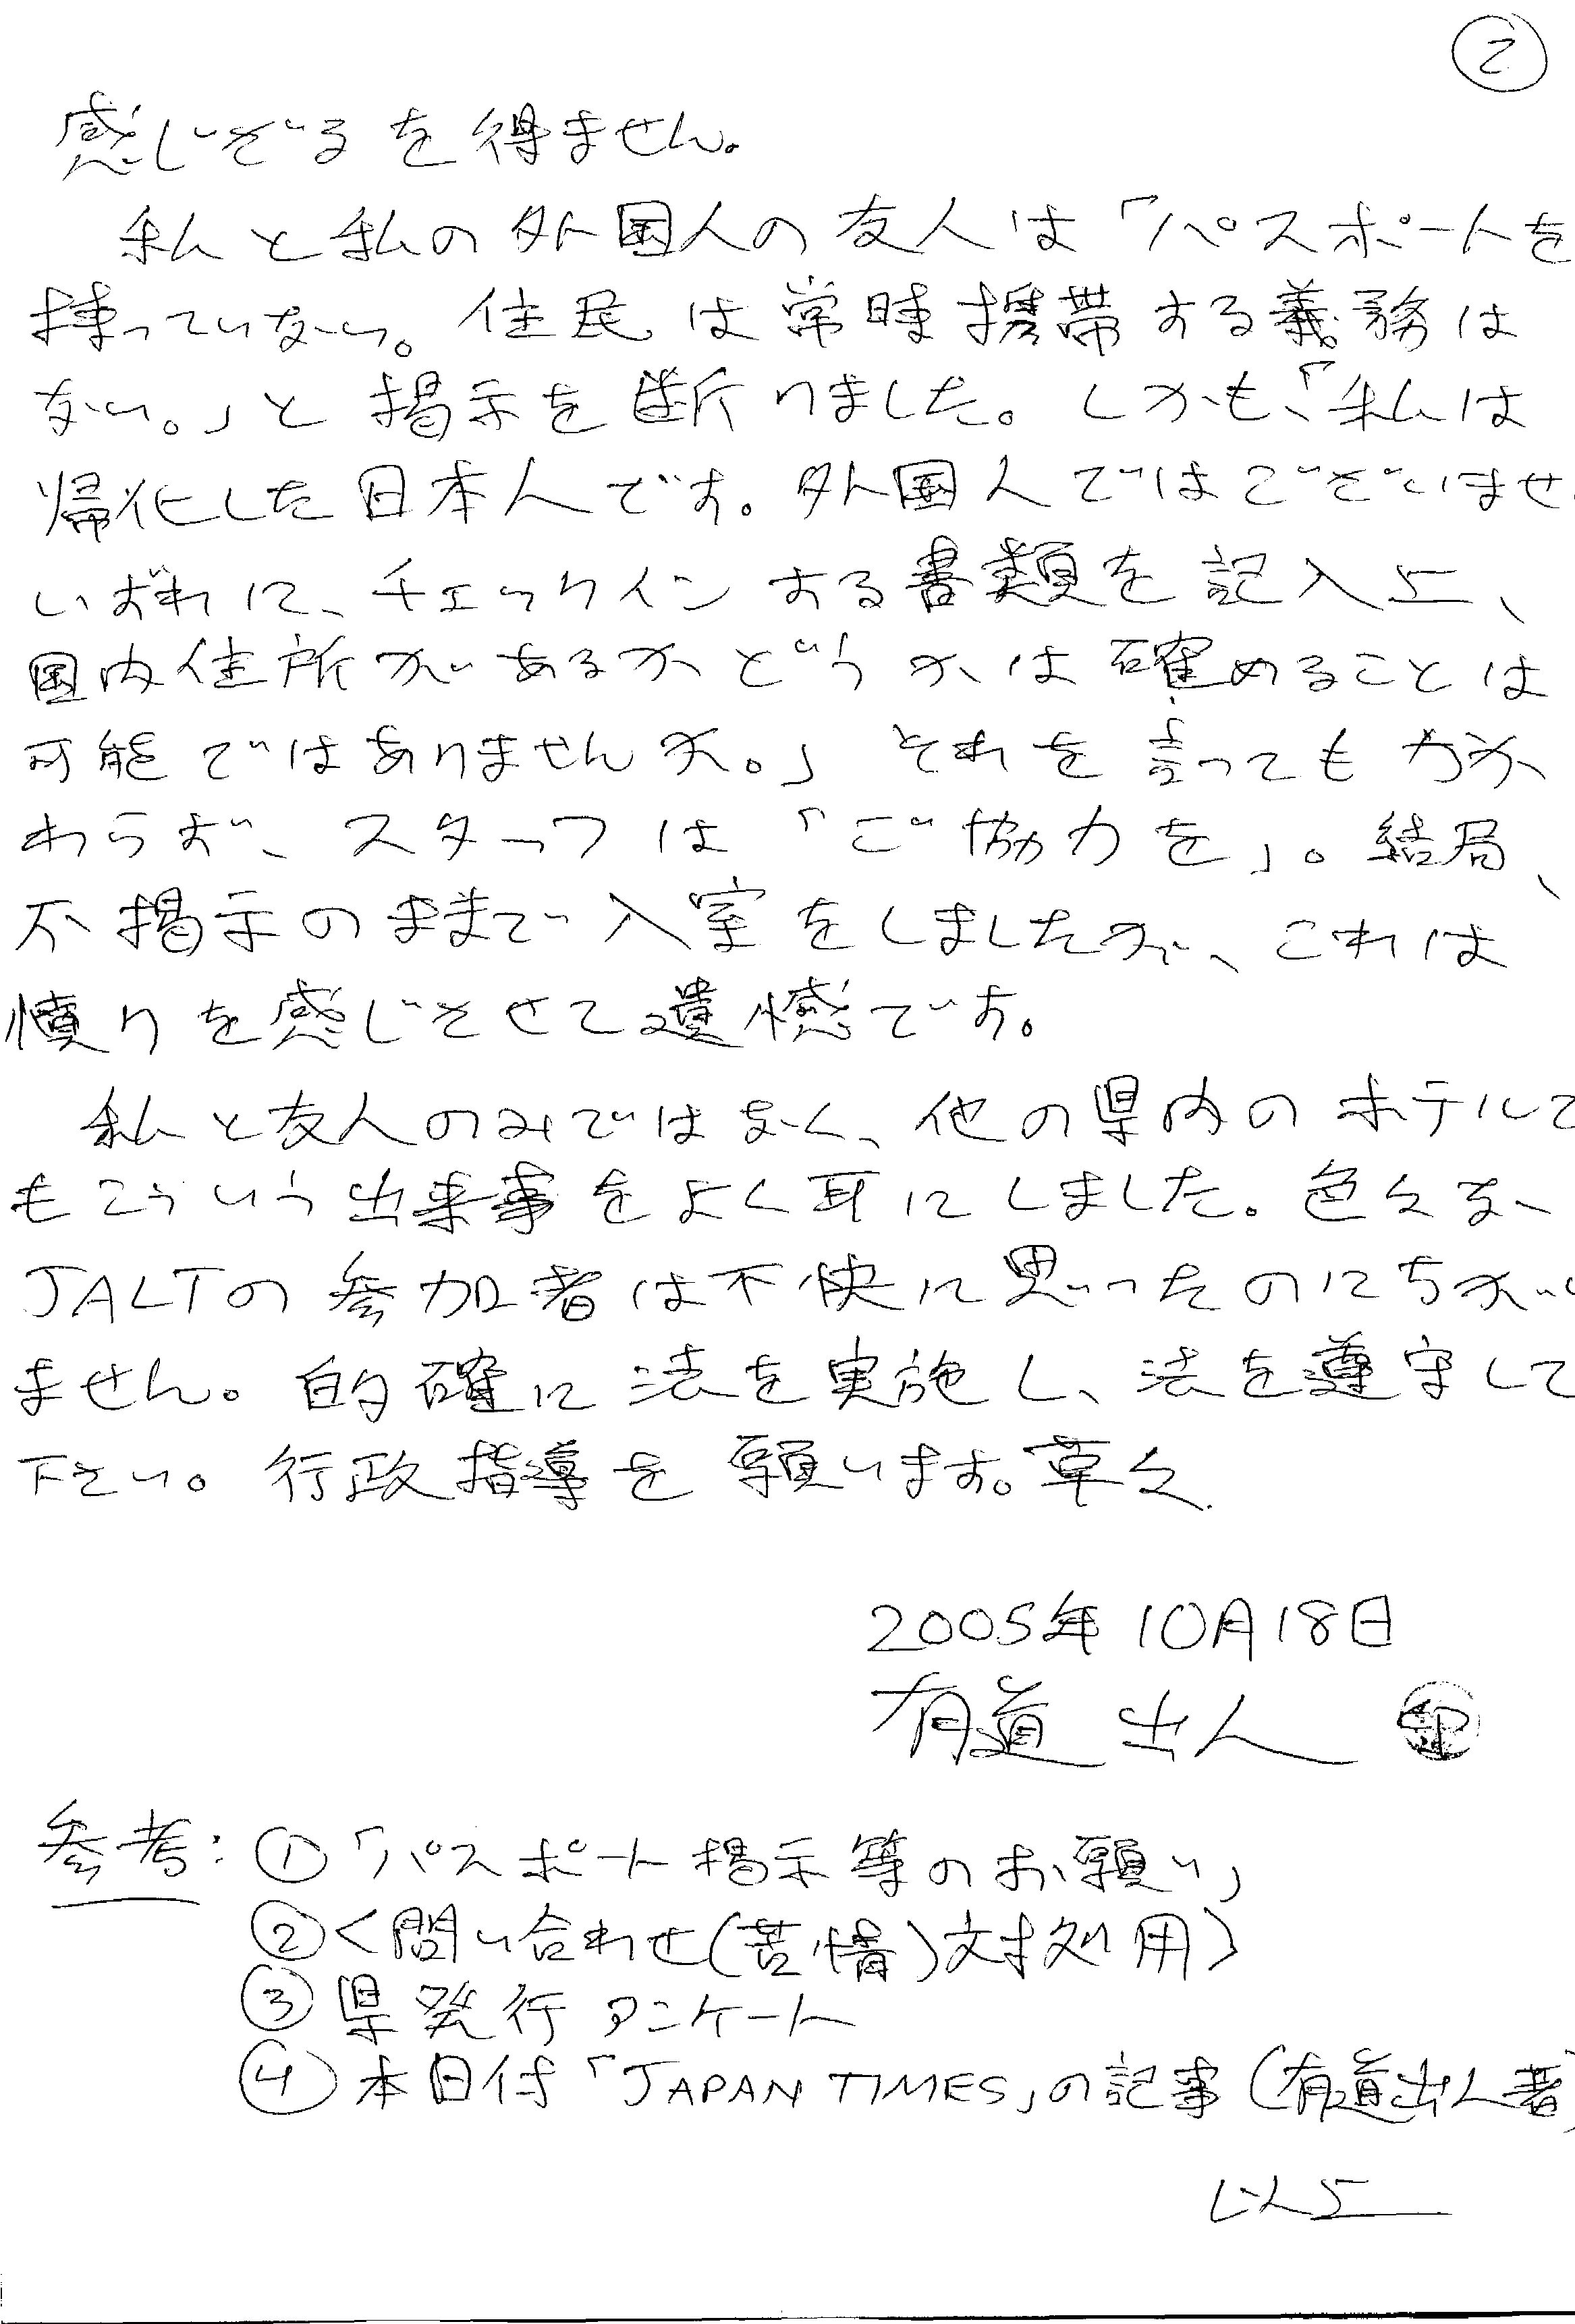 ②
感じざるを得ません。
私と私の外国人の友人は「パスポートを
持っていない。住民は常時携帯する義務は
ない。」と掲示を断りました。しかも、「私は
帰化した日本人です。外国人ではございませ
いずれに、チェックインする書類を記入上、
国内住所があるかどうかは確めることは
可能ではありませんか。」それを言ってもかか
わらず、スタッフは「ご協力を」。結局、
不掲示のままで入室をしましたが、これは
憤りを感じさせて遺憾です。
私と友人のみではなく、他の県内のホテルで
もこういう出来事をよく耳にしました。色々な
JALTの参加者は不快に思ったのにちがい
ません。的確に法を実施し、法を遵守して
下さい。行政指導を願います。草々
2005年10月18日
有道 出人 印
参考：①「パスポート掲示等のお願い」
②＜問い合わせ(苦情)対処用＞
③県発行アンケート
④本日付「JAPAN TIMES」の記事(有道出人著)
以上